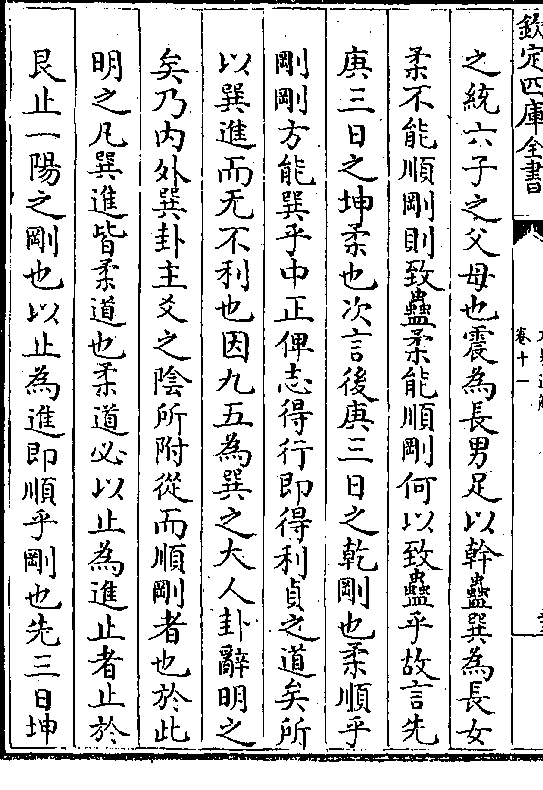 欽定四庫全書
卷十一
之統六子之父母也震為長男足以幹蠱巽為長女
柔不能順剛則致蠱柔能順剛何以致蠱乎故言先
庚三日之坤柔也次言後庚三日之乾剛也柔順乎
剛剛方能巽乎中正俾志得行即得利貞之道矣所
以巽進而无不利也因九五為巽之大人卦辭明之
矣乃内外巽卦主爻之陰所附從而順剛者也於此
明之凡巽進皆柔道也柔道必以止為進止者止於
艮止一陽之剛也以止為進即順乎剛也先三日坤